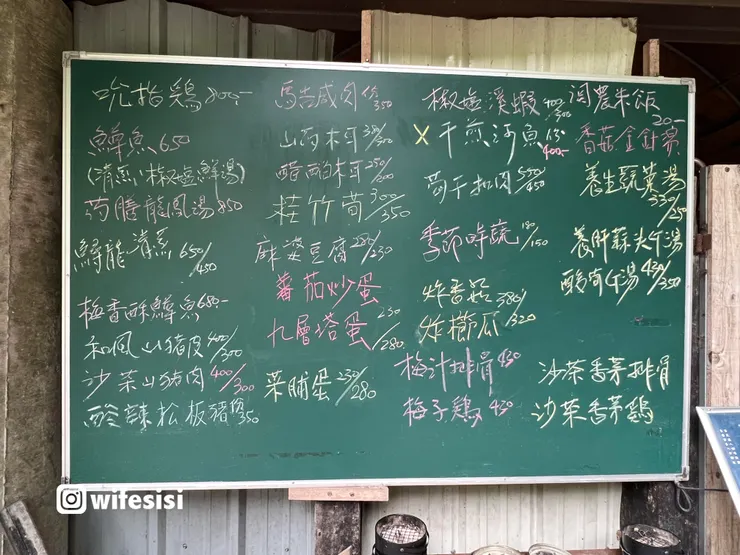 吮指鶏 800.-
鱒魚 650
(清蒸、椒塩、鮮湯)
药膳龍鳳湯 850
鱘龍 清蒸 650/450
梅香酥鱒魚 680-
和風山豬皮 400/300
沙茶山豬肉 400/300
酸辣松板豬 350
馬告咸肉 350
山药木耳 380/300
醋酒木耳 250/200
桂竹筍 300/350
麻婆豆腐 280/230
蕃茄炒蛋
九層塔蛋 230/280
菜脯蛋 230/280
椒塩溪蝦 400/300
X 干煎河魚 400.-
筍干扣肉 550/450
季節時蔬 180/150
炸香菇 380/
炸櫛瓜 320
梅汁排骨 450
梅子鶏 450
润農米飯 20-
香菇金針
養生蔬菜湯 350/250
養肝蒜头
酸 湯 450/350
沙茶香茅排骨
沙茶香茅鶏
wifesisi